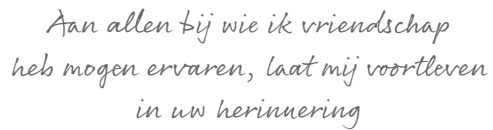 Aan allen bij wie ik vriendschap
heb mogen ervaren, laat mij voortleven
in uw herinnering